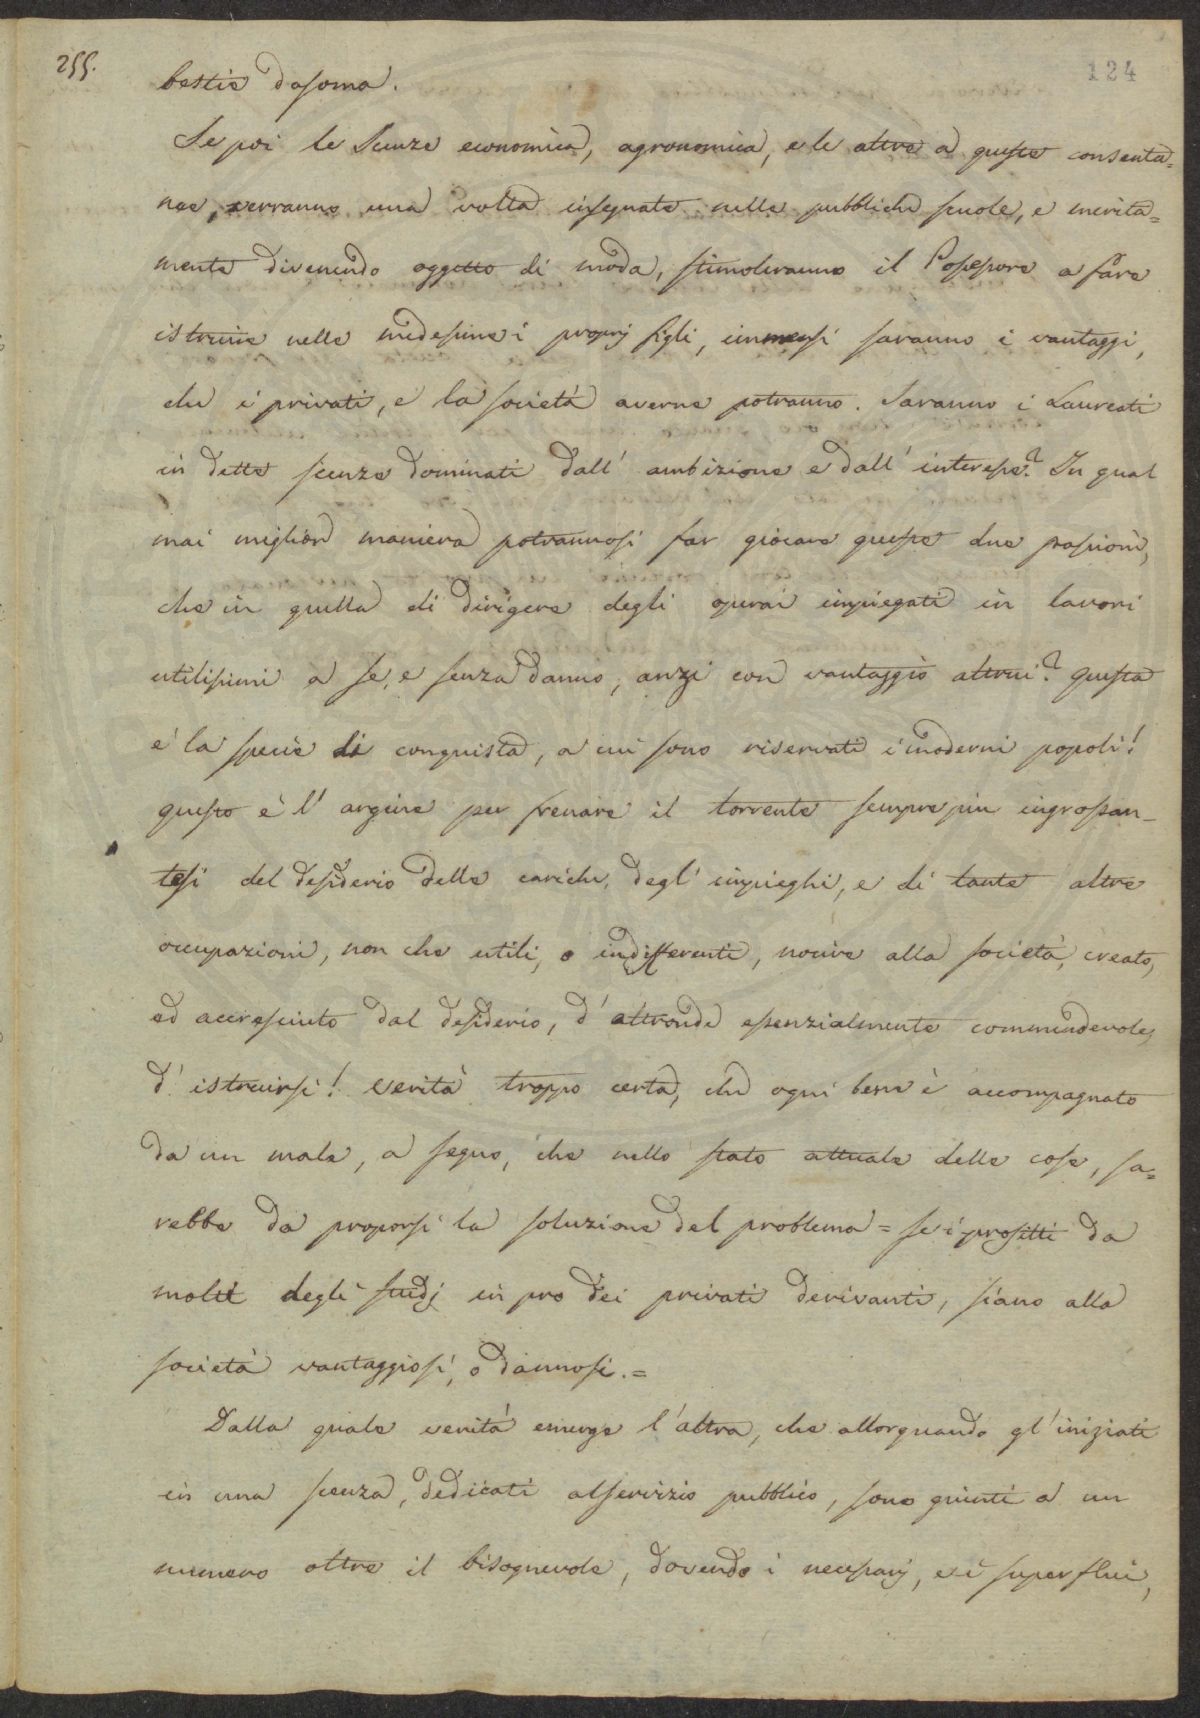 255.
124
bestie da soma.
Se poi le Scienze economica, agronomica, e le altre a queste consenta=
nee, verranno una volta insegnate nelle pubbliche scuole, e merita=
mente divenendo oggetto di moda, stimoleranno il Possessore a fare
istruire nelle medesime i proprj figli, immensi saranno i vantaggi,
che i privati, e la società averne potranno. Saranno i Laureati
in dette scienze dominati dall'ambizione e dall'interesse? In qual
mai miglior maniera potrannosi far giocare queste due passioni,
che in quella di dirigere degli operai impiegati in lavori
utilissimi a se, e senza danno, anzi con vantaggio altrui? questa
è la specie di conquista, a cui sono riservati i moderni popoli!
questo è l'argine per frenare il torrente sempre più ingrossan-
tesi del desiderio delle cariche, degl'impieghi, e di tante altre
occupazioni, non che utili, o indifferenti, nocive alla società, creato,
ed accresciuto dal desiderio, d'altronde essenzialmente commendevole,
d'istruirsi! verità troppo certa, che ogni bene è accompagnato
da un male, a segno, che nello stato attuale delle cose, sa=
rebbe da proporsi la soluzione del problema = se i profitti da
molti degli studj in pro dei privati derivanti, siano alla
società vantaggiosi, o dannosi. =
Dalla quale verità emerge l'altra, che allorquando gl'iniziati
in una scienza, dedicati al servizio pubblico, sono giunti a un
numero oltre il bisognevole, dovendo i necessarj, e i superflui,